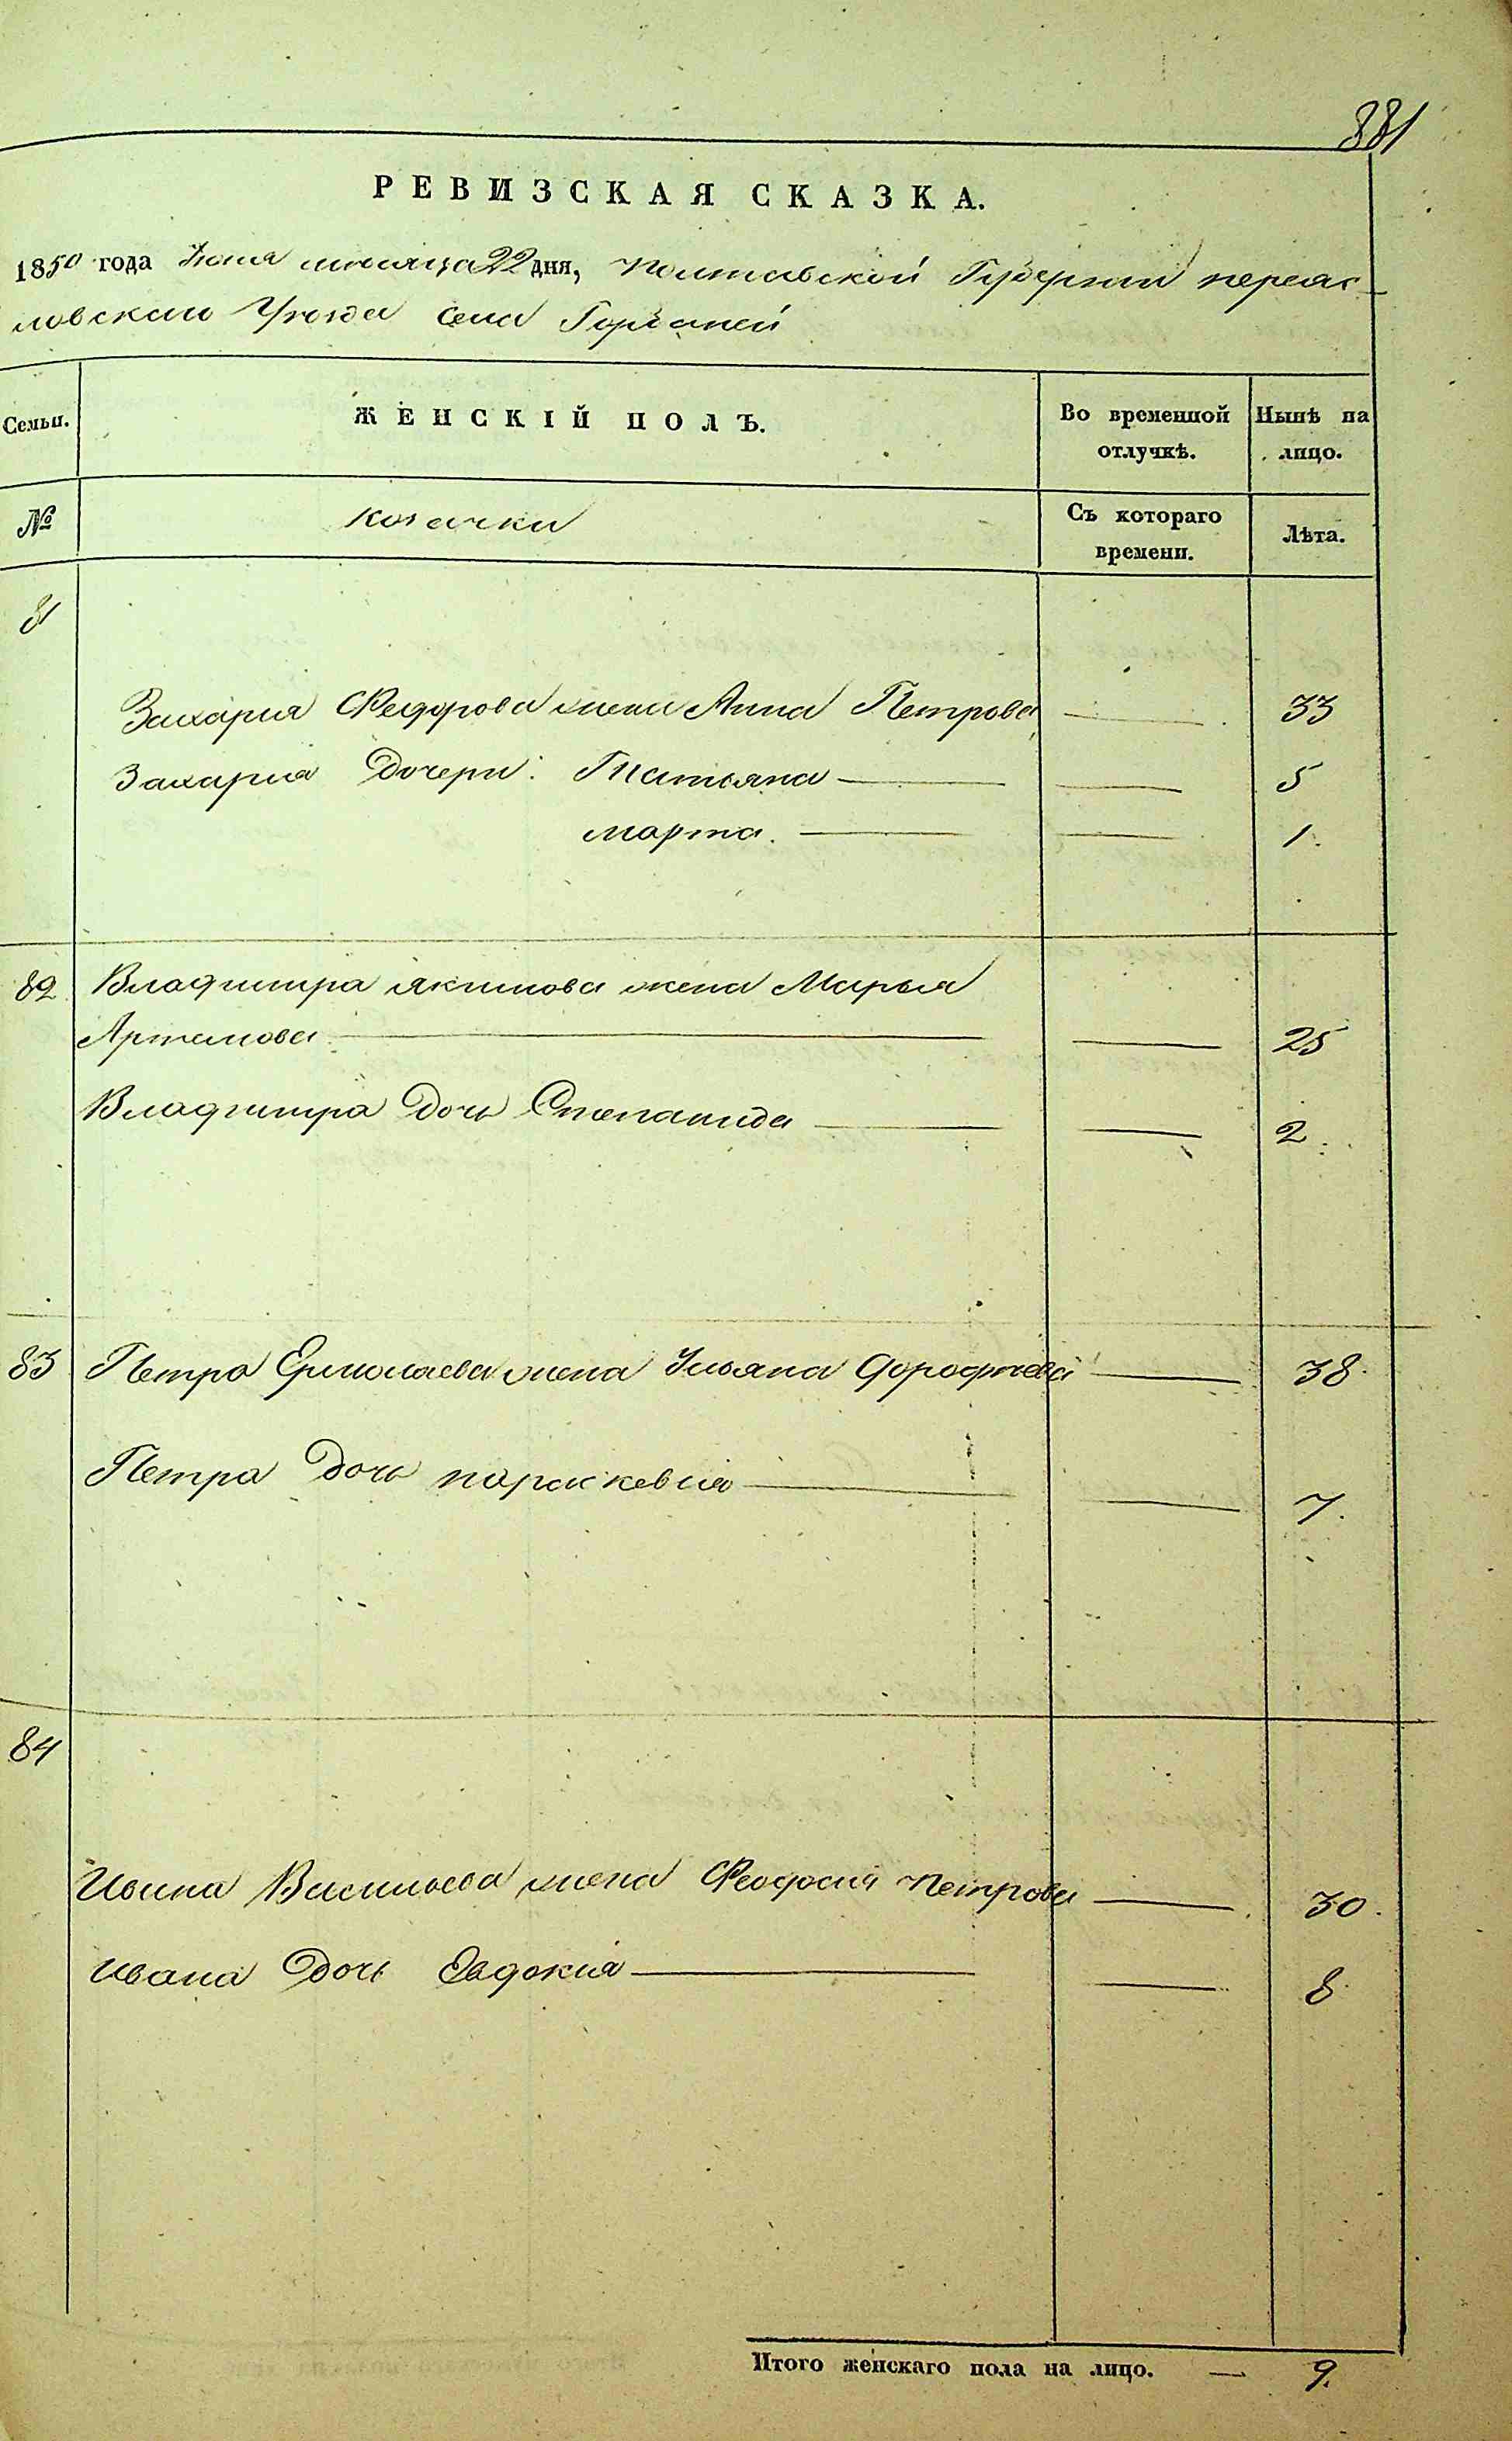 881
РЕВИЗСКАЯ СКАЗКА.
1850 года Июня месяца 22 дня, Полтавской Губернии переяс-
ловскаго Уезда Села
Семьи. ЖЕНСКІЙ ПОЛЪ. Во временной отлучкѣ. Нынѣ на лицо.
№ Козачки Съ котораго времени. Лѣта.
81
Захария Федорова жена Анна Петрова — 33
Захария Дочери: Татьяна — — 5
Марта. — — 1.
82 Владимира Якимова жена Марья
Артемова — — 25
Владимира Дочь Степанида — — 2.
83 Петра Ермолаева жена Ульяна Дорофѣева — 38.
Петра Дочь параскевия — — 7.
84
Ивана Васильева жена Феодосия Петрова — 30.
Ивана Дочь Евдокия — — 8.
Итого женскаго пола на лицо. — 9.